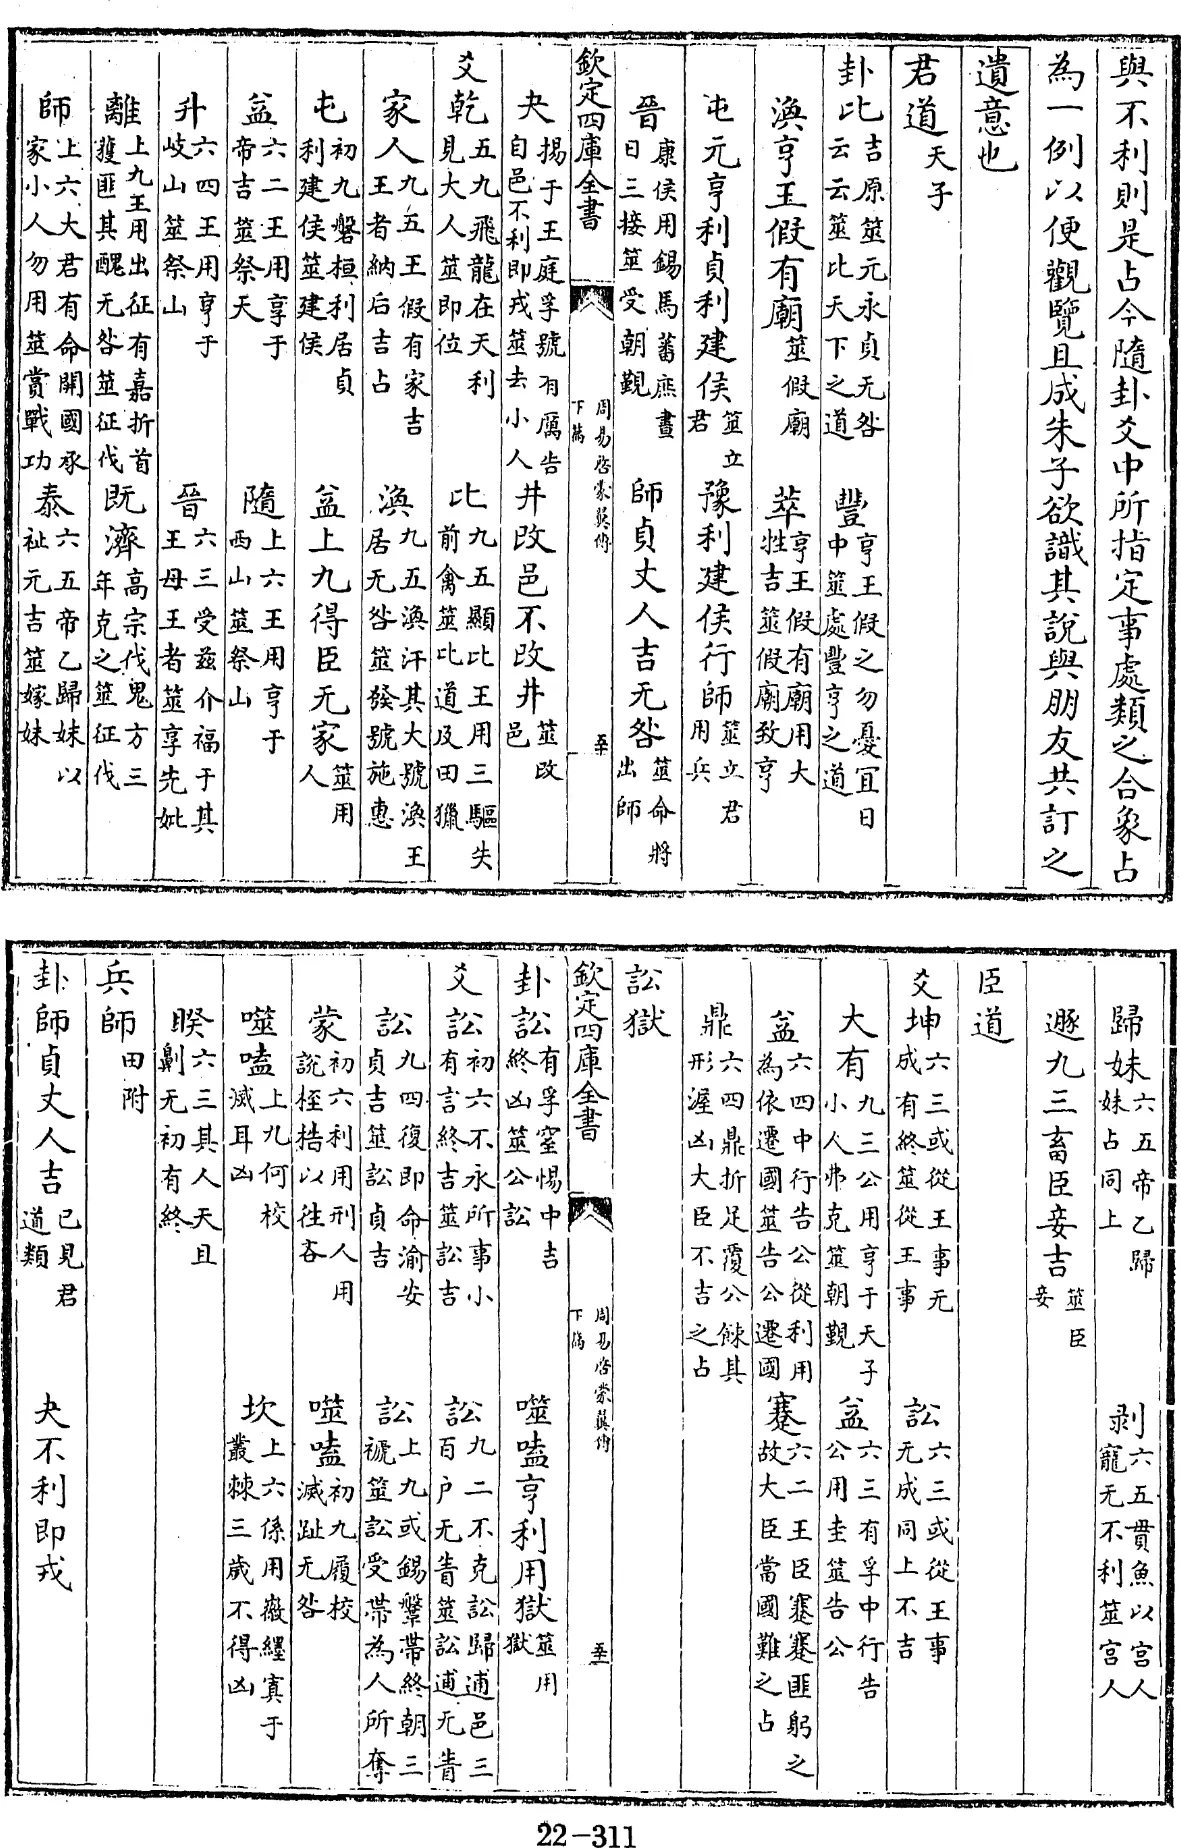 與不利則是占今隨卦爻中所指定事處類之合象占
為一例以便觀覽且成朱子欲識其說與朋友共訂之
遺意也
君道天子
卦比吉原筮元永貞无咎云云筮比天下之道 豐亨王假之勿憂宜日中筮處豐亨之道
渙亨王假有廟筮假廟 萃亨王假有廟用大牲吉筮假廟致亨
屯元亨利貞利建侯筮立君 豫利建侯行師筮立君用兵
晉康侯用錫馬蕃庶晝日三接筮受朝覲 師貞丈人吉无咎筮命將出師
欽定四庫全書 周易啓蒙翼傳下篇 五十
夬揚于王庭孚號有厲告自邑不利即戎筮去小人 井改邑不改井筮改邑
爻乾五九飛龍在天利見大人筮即位 比九五顯比王用三驅失前禽筮比道及田獵
家人九五王假有家吉王者納后吉占 渙九五渙汗其大號渙王居无咎筮發號施惠
屯初九磐桓利居貞利建侯筮建侯 益上九得臣无家筮用人
益六二王用享于帝吉筮祭天 隨上六王用亨于西山筮祭山
升六四王用亨于岐山筮祭山 晉六三受茲介福于其王母王者筮享先妣
離上九王用出征有嘉折首獲匪其醜无咎筮征伐 既濟高宗伐鬼方三年克之筮征伐
師上六大君有命開國承家小人勿用筮賞戰功 泰六五帝乙歸妹以祉元吉筮嫁妹
歸妹六五帝乙歸妹占同上 剥六五貫魚以宮人寵无不利筮宮人
遯九三畜臣妾吉筮臣妾
臣道
爻坤六三或從王事无成有終筮從王事 訟六三或從王事无成同上不吉
大有九三公用亨于天子小人弗克筮朝覲 益六三有孚中行告公用圭筮告公
益六四中行告公從利用為依遷國筮告公遷國 蹇六二王臣蹇蹇匪躬之故大臣當國難之占
鼎六四鼎折足覆公餗其形渥凶大臣不吉之占
訟獄
欽定四庫全書 周易啓蒙翼傳下篇 五十一
卦訟有孚窒惕中吉終凶筮公訟 噬嗑亨利用獄筮用獄
爻訟初六不永所事小有言終吉筮訟吉 訟九二不克訟歸逋邑三百户无眚筮訟逋无眚
訟九四復即命渝安貞吉筮訟貞吉 訟上九或錫鞶帶終朝三褫筮訟受帶為人所奪
蒙初六利用刑人用說桎梏以往吝 噬嗑初九履校滅趾无咎
噬嗑上九何校滅耳凶 坎上六係用徽纆寘于叢棘三歲不得凶
睽六三其人天且劓无初有終
兵師田附
卦師貞丈人吉已見君道類 夬不利即戎
22-311